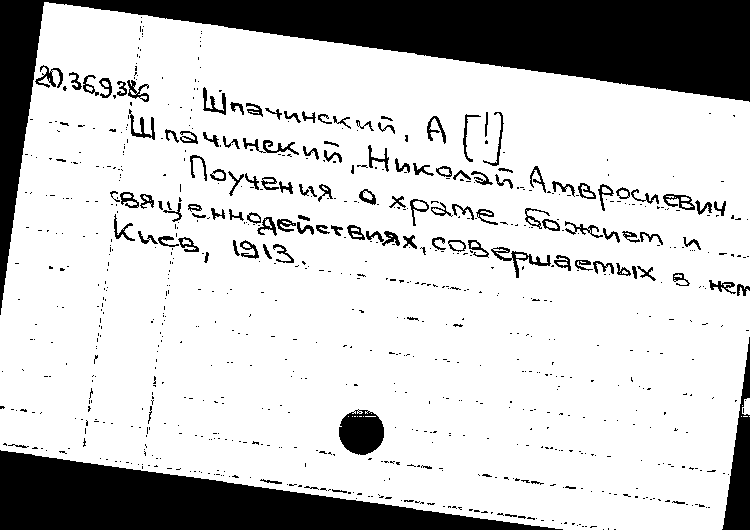 20.36.9.386
Шпачинский, А [!]
Шпачинский, Николай Амвросиевич.
Поучения о храме божием и
священнодействиях, совершаемых в нем
Киев, 1913.